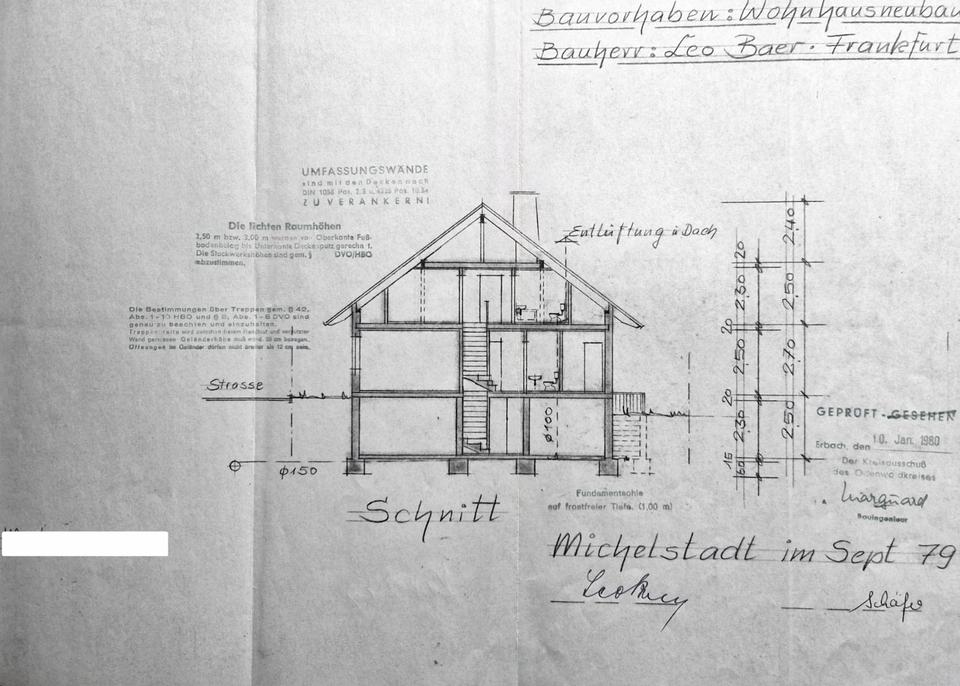 Bauvorhaben: Wohnhausneubau
Bauherr: Leo Baer · Frankfurt
UMFASSUNGSWÄNDE
sind mit den Decken nach
DIN 1053 Pos. 2.3 u.
ZUVERANKERN!
Die lichten Raumhöhen
2,50 m bzw. 2,00 m von Oberkante Fuß-
bodenbelag bis Unterkante Deckenputz gerechnet
Die Stockwerkshöhen sind gem. § DVO/HBO
abzustimmen.
Entlüftung ü Dach
Die Bestimmungen über Treppen gem. § 42,
Abs. 1-10 HBO und § 8, Abs. 1-6 DVO sind
genau zu beachten und einzuhalten.
Öffnungen im Geländer dürfen nicht breiter als 12 cm sein.
Strasse
ϕ150
ϕ100
20
2,40
2,30
2,50
20
2,50
2,70
20
2,30
2,50
15
60
GEPRÜFT - GESEHEN
Erbach, den 10. Jan. 1980
Der Kreisausschuß
des Odenwaldkreises
Marquard
Bauingenieur
Fundamentsohle
auf frostfreier Tiefe. (1,00 m)
Schnitt
Michelstadt im Sept 79
Schäfer